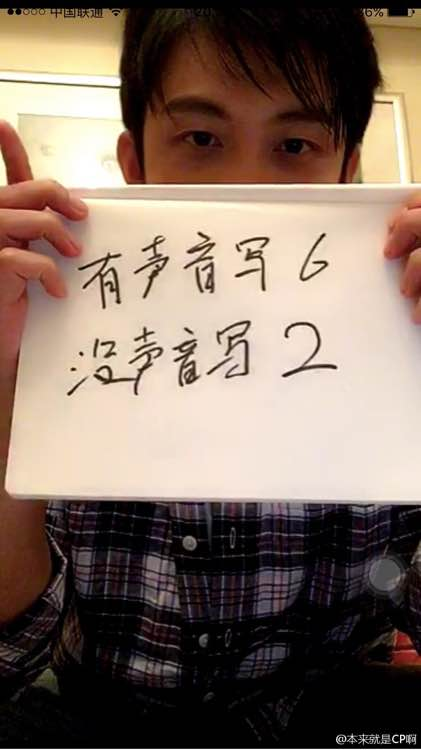 中国联通
6%
有声音写6
没声音写2
@本来就是CP啊